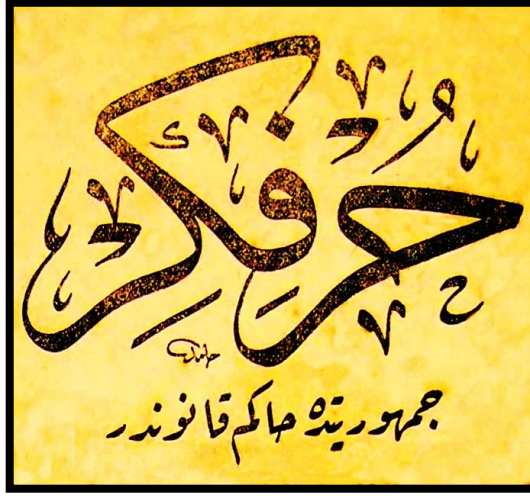 حُر فِكر
حامد
جمهوريتده حاكم قانوندر